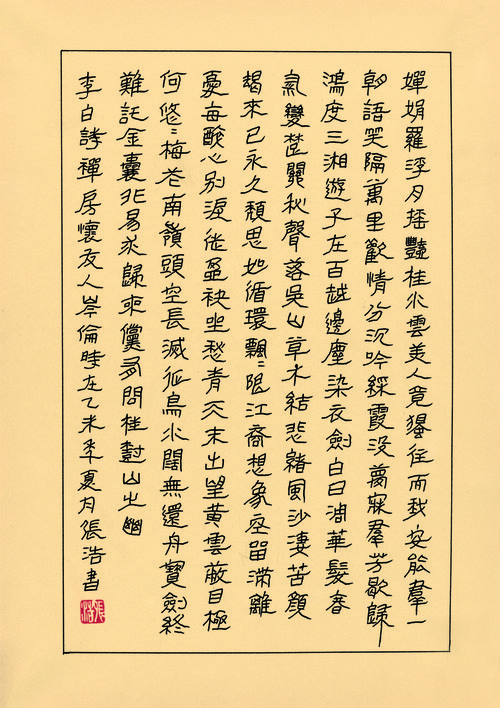 嬋娟羅浮月搖豔桂水雲美人竟獨往而我安能羣一
朝語笑隔萬里歡情分沉吟綵霞没夢寐羣芳歇歸
鴻度三湘遊子在百越邊塵染衣劍白日凋華髮春
氣變楚關秋聲落吳山草木結悲緒風沙淒苦顏
朅來已永久頹思如循環飄〻限江裔想象空留滯離
憂每醉心別淚徒盈袂坐愁青天末出望黃雲蔽目極
何悠〻梅花南嶺頭空長滅征鳥水闊無還舟寶劍終
難託金囊非易求歸來儻有問桂樹山之幽
李白詩禪房懷友人岑倫時在乙未季夏月張浩書
張浩